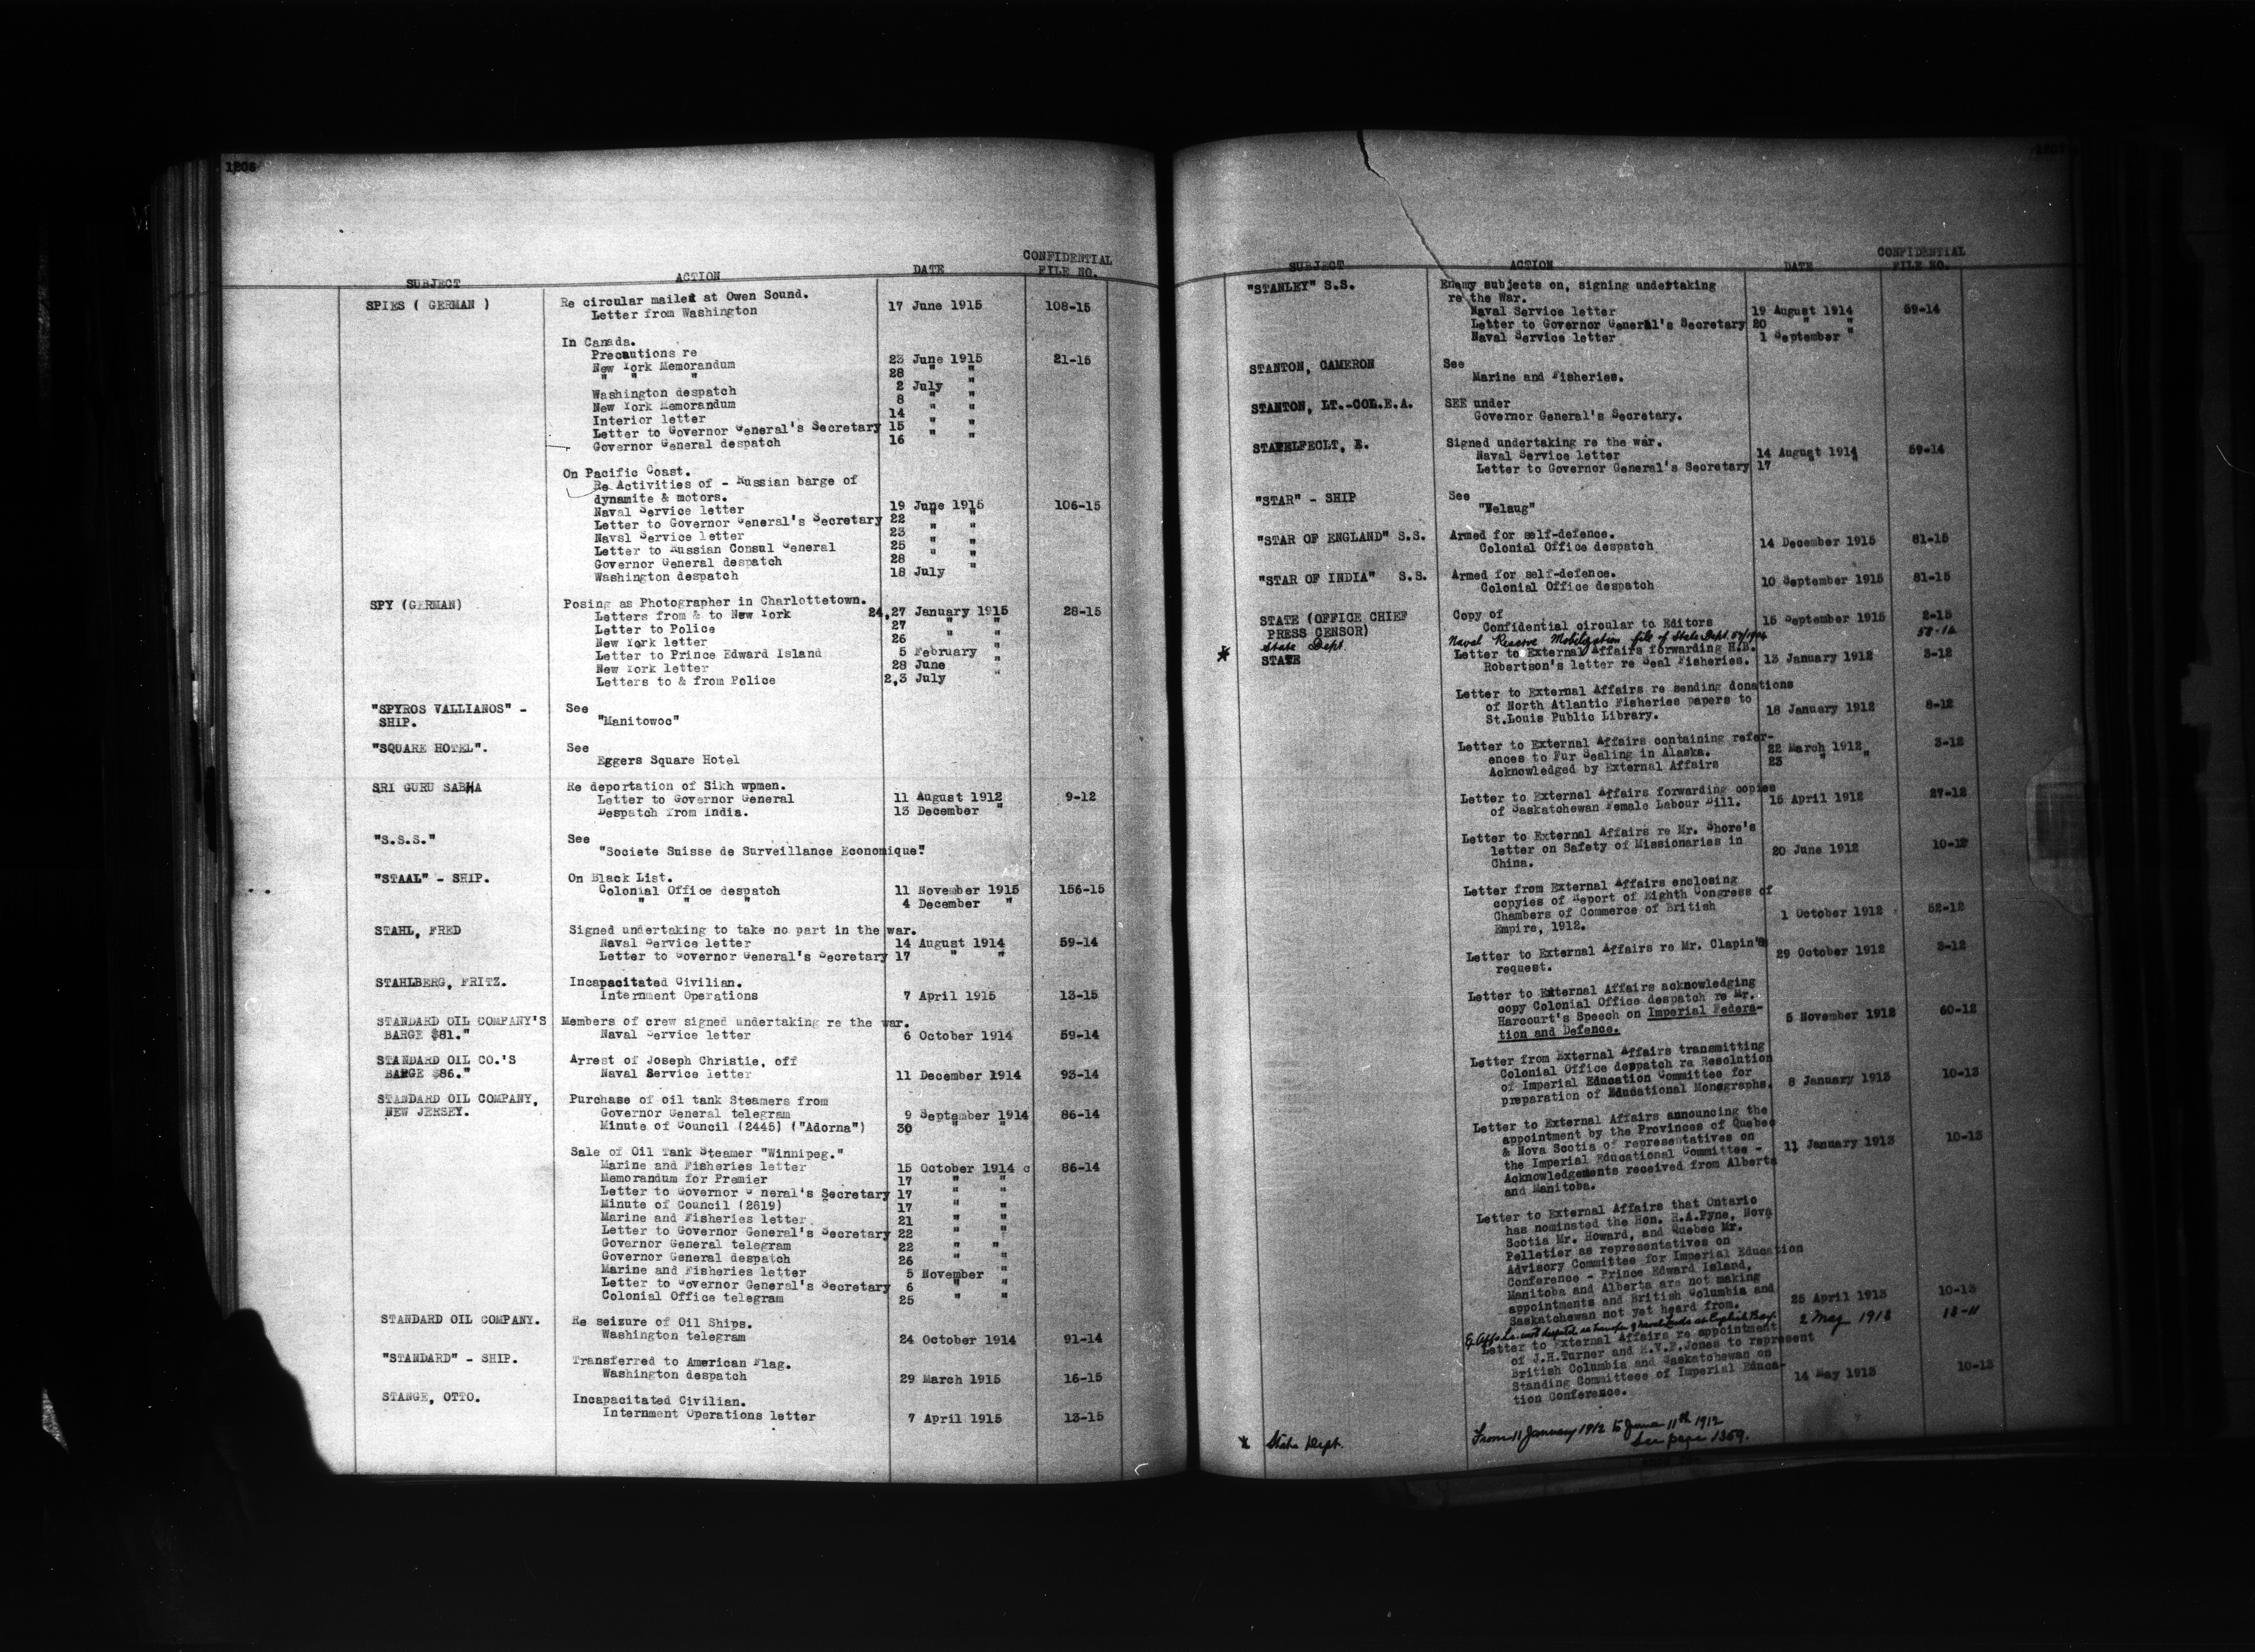 1206
SUBJECT ACTION DATE CONFIDENTIAL FILE NO.
SPIES ( GERMAN ) Re circular mailed at Owen Sound.
Letter from Washington 17 June 1915 108-15
In Canada.
Precautions re
New York Memorandum 23 June 1915 21-15
" " " 28 " "
Washington despatch 2 July "
New York Memorandum 8 " "
Interior letter 14 " "
Letter to Governor General's Secretary 15 " "
Governor General despatch 16 " "
On Pacific Coast.
Re Activities of - Russian barge of
dynamite & motors.
Naval Service letter 19 June 1915 106-15
Letter to Governor General's Secretary 22 " "
Navsl Service letter 23 " "
Letter to Russian Consul General 25 " "
Governor General despatch 28 " "
Washington despatch 18 July "
SPY (GERMAN) Posing as Photographer in Charlottetown.
Letters from & to New York 24,27 January 1915 28-15
Letter to Police 27 " "
New York letter 26 " "
Letter to Prince Edward Island 5 February "
New York letter 28 June "
Letters to & from Police 2,3 July
"SPYROS VALLIANOS" - See
SHIP. "Manitowoc"
"SQUARE HOTEL". See
Eggers Square Hotel
SRI GURU SABHA Re deportation of Sikh wpmen.
Letter to Governor General 11 August 1912 9-12
Despatch from India. 13 December "
"S.S.S." See
"Societe Suisse de Surveillance Economique"
"STAAL" - SHIP. On Black List.
Colonial Office despatch 11 November 1915 156-15
" " " 4 December "
STAHL, FRED Signed undertaking to take no part in the war.
Naval Service letter 14 August 1914 59-14
Letter to Governor General's Secretary 17 " "
STAHLBERG, FRITZ. Incapacitated Civilian.
Internment Operations 7 April 1915 13-15
STANDARD OIL COMPANY'S Members of crew signed undertaking re the war.
BARGE $81." Naval Service letter 6 October 1914 59-14
STANDARD OIL CO.'S Arrest of Joseph Christie, off
BARGE $86." Naval Service letter 11 December 1914 93-14
STANDARD OIL COMPANY, Purchase of oil tank Steamers from
NEW JERSEY. Governor General telegram 9 September 1914 86-14
Minute of Council (2445) ("Adorna") 30 " "
Sale of Oil Tank Steamer "Winnipeg."
Marine and Fisheries letter 15 October 1914 86-14
Memorandum for Premier 17 " "
Letter to Governor G neral's Secretary 17 " "
Minute of Council (2619) 17 " "
Marine and Fisheries letter 21 " "
Letter to Governor General's Secretary 22 " "
Governor General telegram 22 " "
Governor General despatch 26 " "
Marine and Fisheries letter 5 November "
Letter to Governor General's Secretary 6 " "
Colonial Office telegram 25 " "
STANDARD OIL COMPANY. Re seizure of Oil Ships.
Washington telegram 24 October 1914 91-14
"STANDARD" - SHIP. Transferred to American Flag.
Washington despatch 29 March 1915 16-15
STANGE, OTTO. Incapacitated Civilian.
Internment Operations letter 7 April 1915 13-15
SUBJECT ACTION DATE CONFIDENTIAL FILE NO.
"STANLEY" S.S. Enemy subjects on, signing undertaking
re the War.
Naval Service letter 19 August 1914 59-14
Letter to Governor General's Secretary 20 " "
Naval Service letter 1 September "
STANTON, CAMERON See
Marine and Fisheries.
STANTON, LT.-COL.E.A. SEE under
Governor General's Secretary.
STAPELFECLT, E. Signed undertaking re the war.
Naval Service letter 14 August 1914 59-14
Letter to Governor General's Secretary 17 " "
"STAR" - SHIP See
"Welaug"
"STAR OF ENGLAND" S.S. Armed for self-defence.
Colonial Office despatch 14 December 1915 81-15
"STAR OF INDIA" S.S. Armed for self-defence.
Colonial Office despatch 10 September 1915 81-15
STATE (OFFICE CHIEF Copy of
PRESS CENSOR) Confidential circular to Editors 15 September 1915 2-15
State Dept. Naval Reserve Mobilization file of State Dept. 58-14
STATE Letter to External Affairs forwarding H.B.
Robertson's letter re Seal Fisheries. 13 January 1912 3-12
Letter to External Affairs re sending donations
of North Atlantic Fisheries papers to
St.Louis Public Library. 18 January 1912 8-12
Letter to External Affairs containing refer-
ences to Fur Sealing in Alaska. 22 March 1912 3-12
Acknowledged by External Affairs 23 " "
Letter to External Affairs forwarding copies
of Saskatchewan Female Labour Bill. 15 April 1912 27-12
Letter to External Affairs re Mr. Shore's
letter on Safety of Missionaries in
China. 20 June 1912 10-12
Letter from External Affairs enclosing
copyies of Report of Eighth Congress of
Chambers of Commerce of British
Empire, 1912. 1 October 1912 52-12
Letter to External Affairs re Mr. Clapin's
request. 29 October 1912 3-12
Letter to External Affairs acknowledging
copy Colonial Office despatch re Mr.
Harcourt's Speech on Imperial Federa-
tion and Defence. 5 November 1912 60-12
Letter from External Affairs transmitting
Colonial Office despatch re Resolution
of Imperial Education Committee for
preparation of Educational Monographs. 8 January 1913 10-13
Letter to External Affairs announcing the
appointment by the Provinces of Quebec
& Nova Scotia of representatives on
the Imperial Educational Committee -
Acknowledgements received from Alberta
and Manitoba. 11 January 1913 10-13
Letter to External Affairs that Ontario
has nominated the Hon. R.A.Pyne, Nova
Scotia Mr. Howard, and Quebec Mr.
Pelletier as representatives on
Advisory Committee for Imperial Education
Conference - Prince Edward Island,
Manitoba and Alberta are not making
appointments and British Columbia and
Saskatchewan not yet heard from. 25 April 1913 10-13
2 May 1912 13-11
Letter to External Affairs re appointment
of J.H.Turner and H.V.F.Jones to represent
British Columbia and Saskatchewan on
Standing Committeee of Imperial Educa-
tion Conference. 14 May 1913 10-13
State Dept. From 11 January 1912 to June 11th 1912
See page 1369.